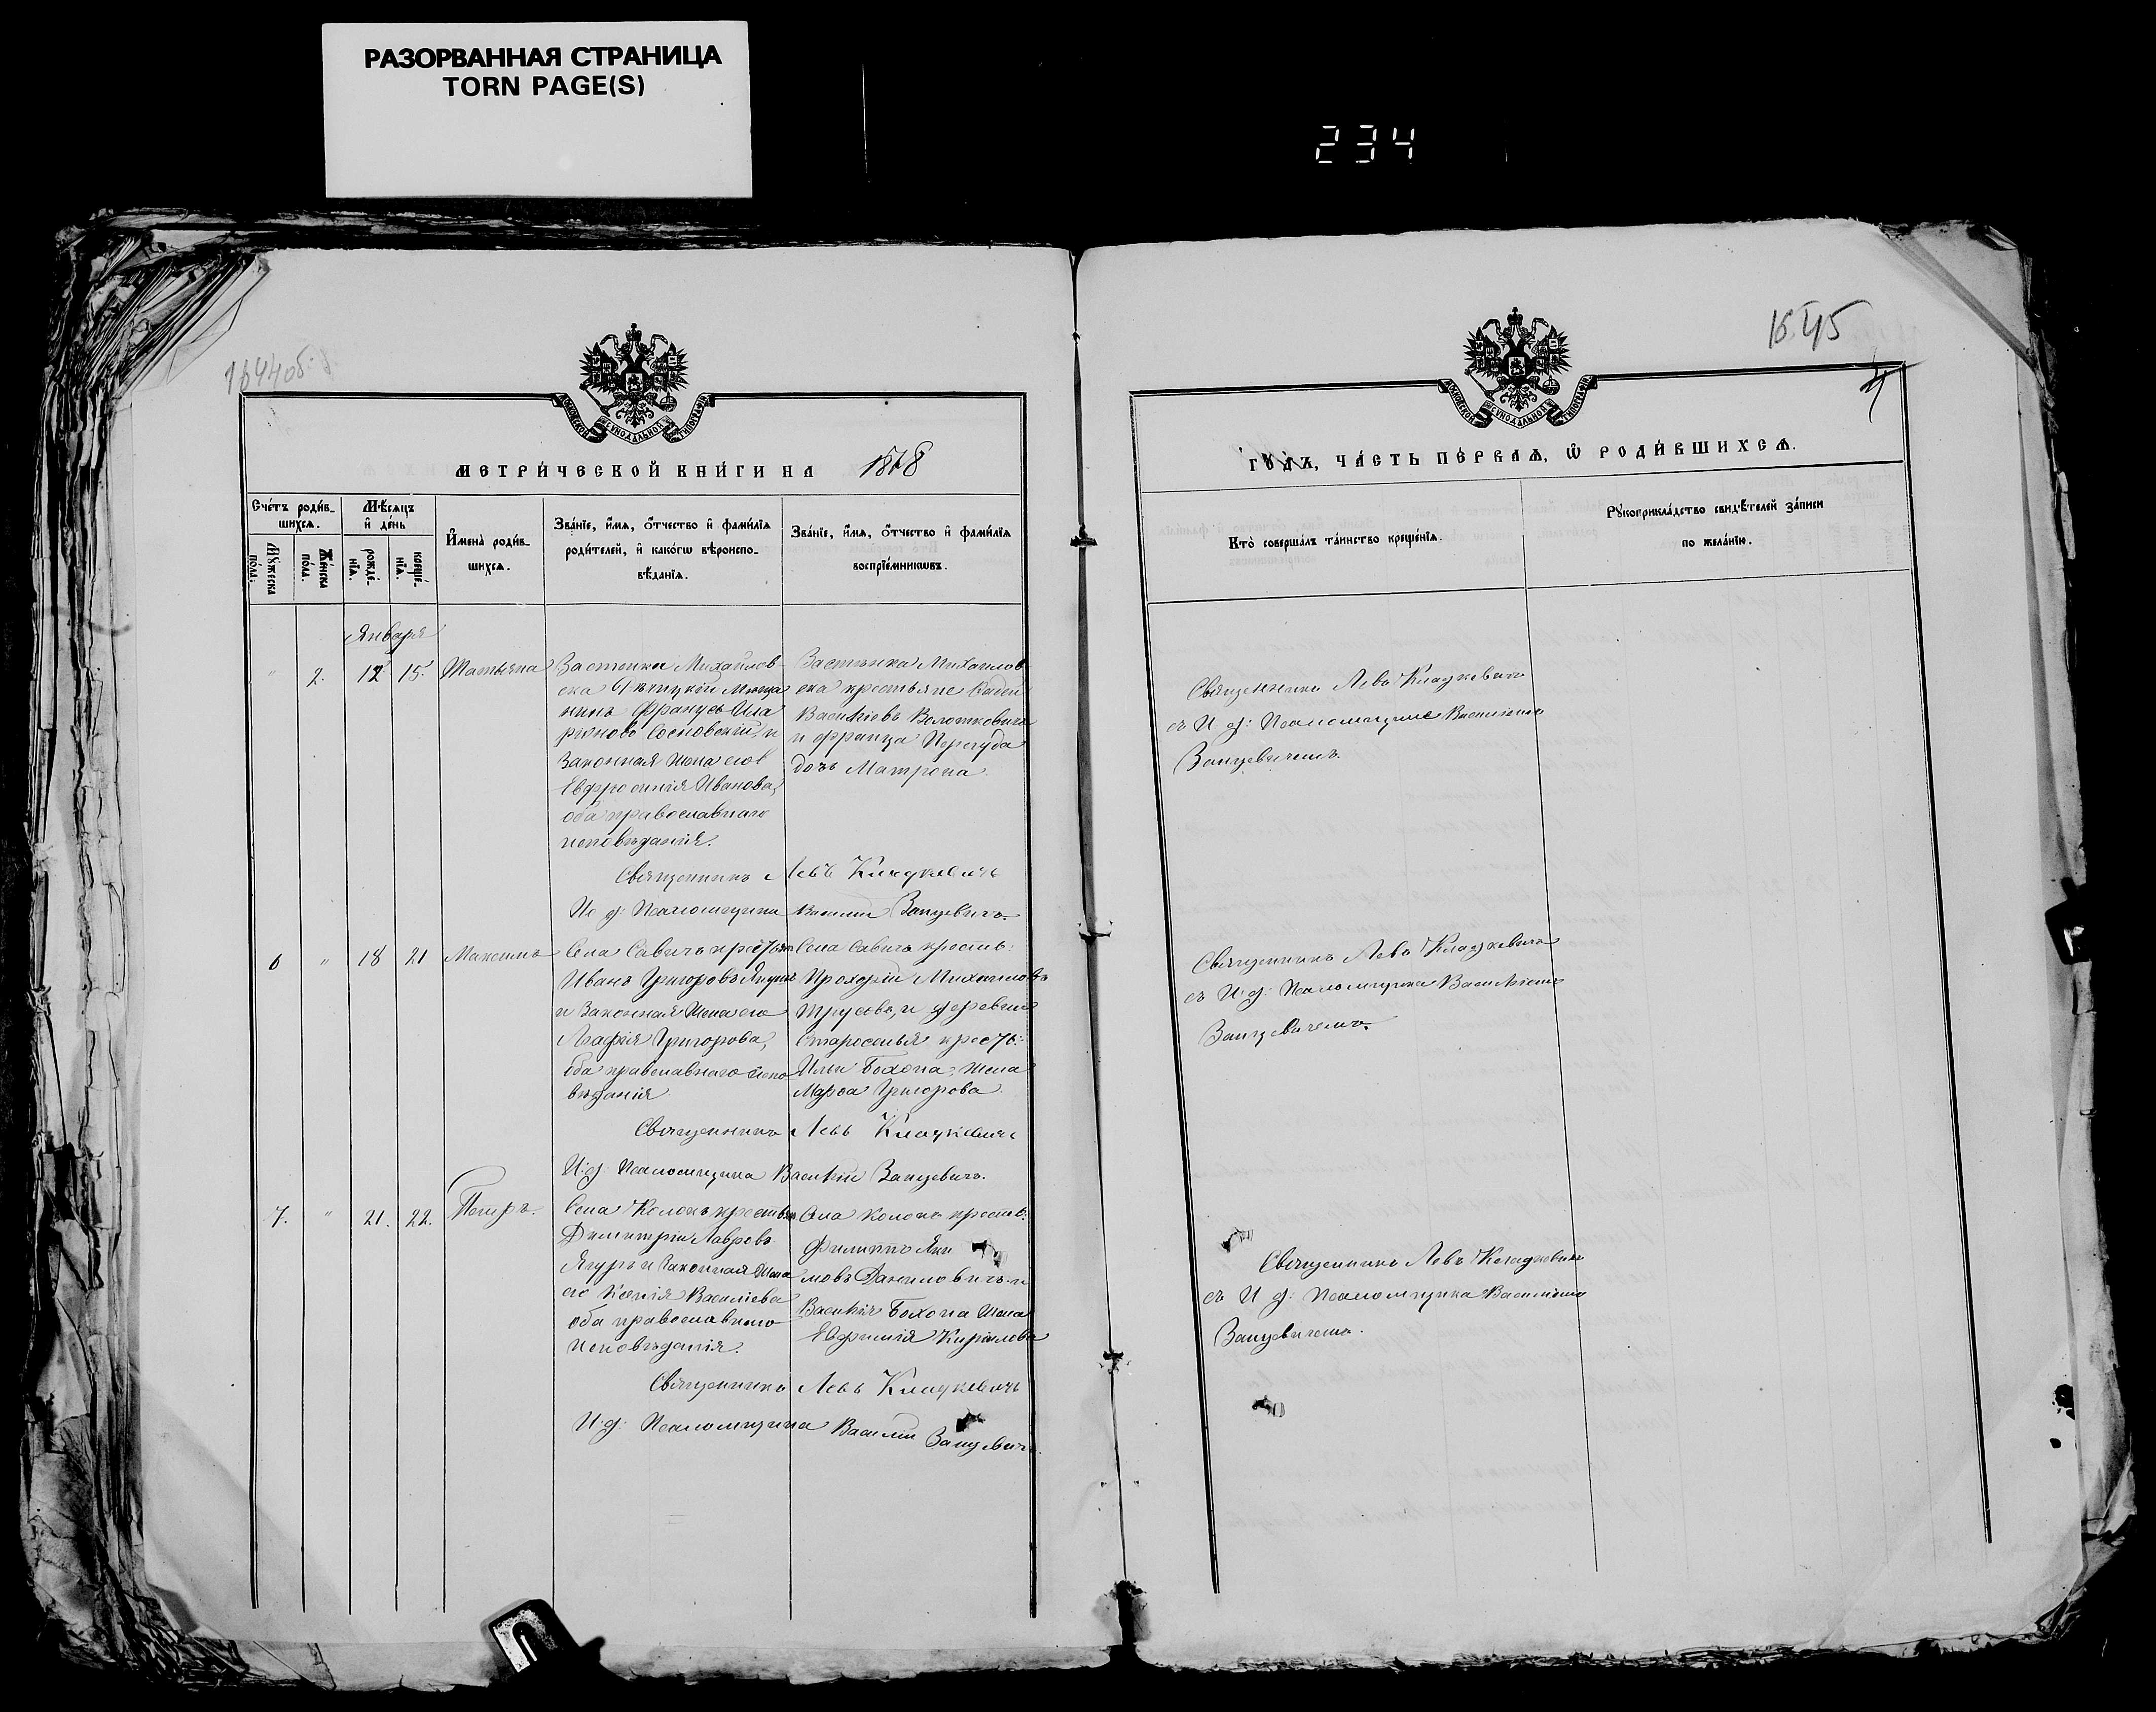 РАЗОРВАННАЯ СТРАНИЦА
TORN PAGE(S)
234
МЕТРИ́ЧЕСКОЙ КНИ́ГИ НА 1878
Сче́тъ роди́в-
шихсѧ.
Мѣ́сѧцъ
и҆ де́нь
Мꙋ́жеска
по́ла.
Же́нска
по́ла.
рожде́-
нїѧ.
креще́-
нїѧ.
И҆мена̀ роди́в-
шихсѧ.
Зва́нїе, и҆́мѧ, ѻ҆́тчество и҆ фами́лїѧ
роди́телей, и҆ како́гѡ вѣроиспо-
вѣ́данїѧ.
Зва́нїе, и҆́мѧ, ѻ҆́тчество и҆ фами́лїѧ
воспрїе́мникѡвъ.
Января
2. 12 15. Татьяна
Застенка Михайлов
ска
Франц
Сосновскій, и
законная жена его
Евфросинія Иванова,
оба православнаго
исповѣданія.
Застѣнка Михайлов
ска крестьяне
Василіевъ
и Франца
дочь Матрона.
Священникъ Левъ
И д: Псаломщика Василій Занцевичъ.
6 " 18 21 Максимъ
Села Савичъ крестьян
Иванъ Григоровъ
и законная жена его
Агафія Григорова,
оба православнаго испо
вѣданія
Села Савичъ кресть:
Прохорій Михаиловъ
и деревни
Староселья крест:
Ильи Бохона, жена
Марѳа Григорова
Священникъ Левъ
И: д: Псаломщика Василій Занцевичъ.
7. " 21. 22. Петръ.
Села Колокъ крестьян
Димитрій Лавровъ
Ягуръ и законная жена
его Ксенія Василіева
оба православнаго
исповѣданія.
Села Колокъ кресть:
Филиппъ Яки
мовъ Даниловичъ и
Василія Бохона жена
Евфимія Кирилова
Священникъ Левъ
И: д: Псаломщика Василій Занцевичъ.
1545
4
ГО́ДЪ, ЧА́СТЬ ПЕ́РВАѦ, Ѡ҆ РОДИ́ВШИХСѦ.
Кто̀ соверша́лъ та́инство креще́нїѧ.
Рꙋкоприкла́дство свидѣ́телей за́писи
по жела́нїю.
Священникъ Левъ
съ И д: Псаломщика Василіемъ
Занцевичемъ.
Священникъ Левъ
съ И: д: Псаломщика Василіемъ
Занцевичемъ.
Священникъ Левъ
съ И д: Псаломщика Василіемъ
Занцевичемъ.